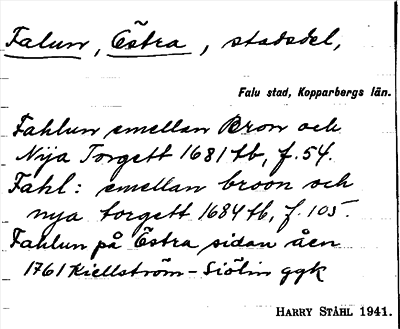 Falun, Östra, stadsdel,
Falu stad, Kopparbergs län.
Fahlun emellan Bron och
Nya Torgett 1681 tb, f. 54.
Fahl: emellan broon och
nya torgett 1684 tb, f. 105.
Fahlun på Östra sidan åen
1761 Kiellström-Siölin ggk
HARRY STÅHL 1941.